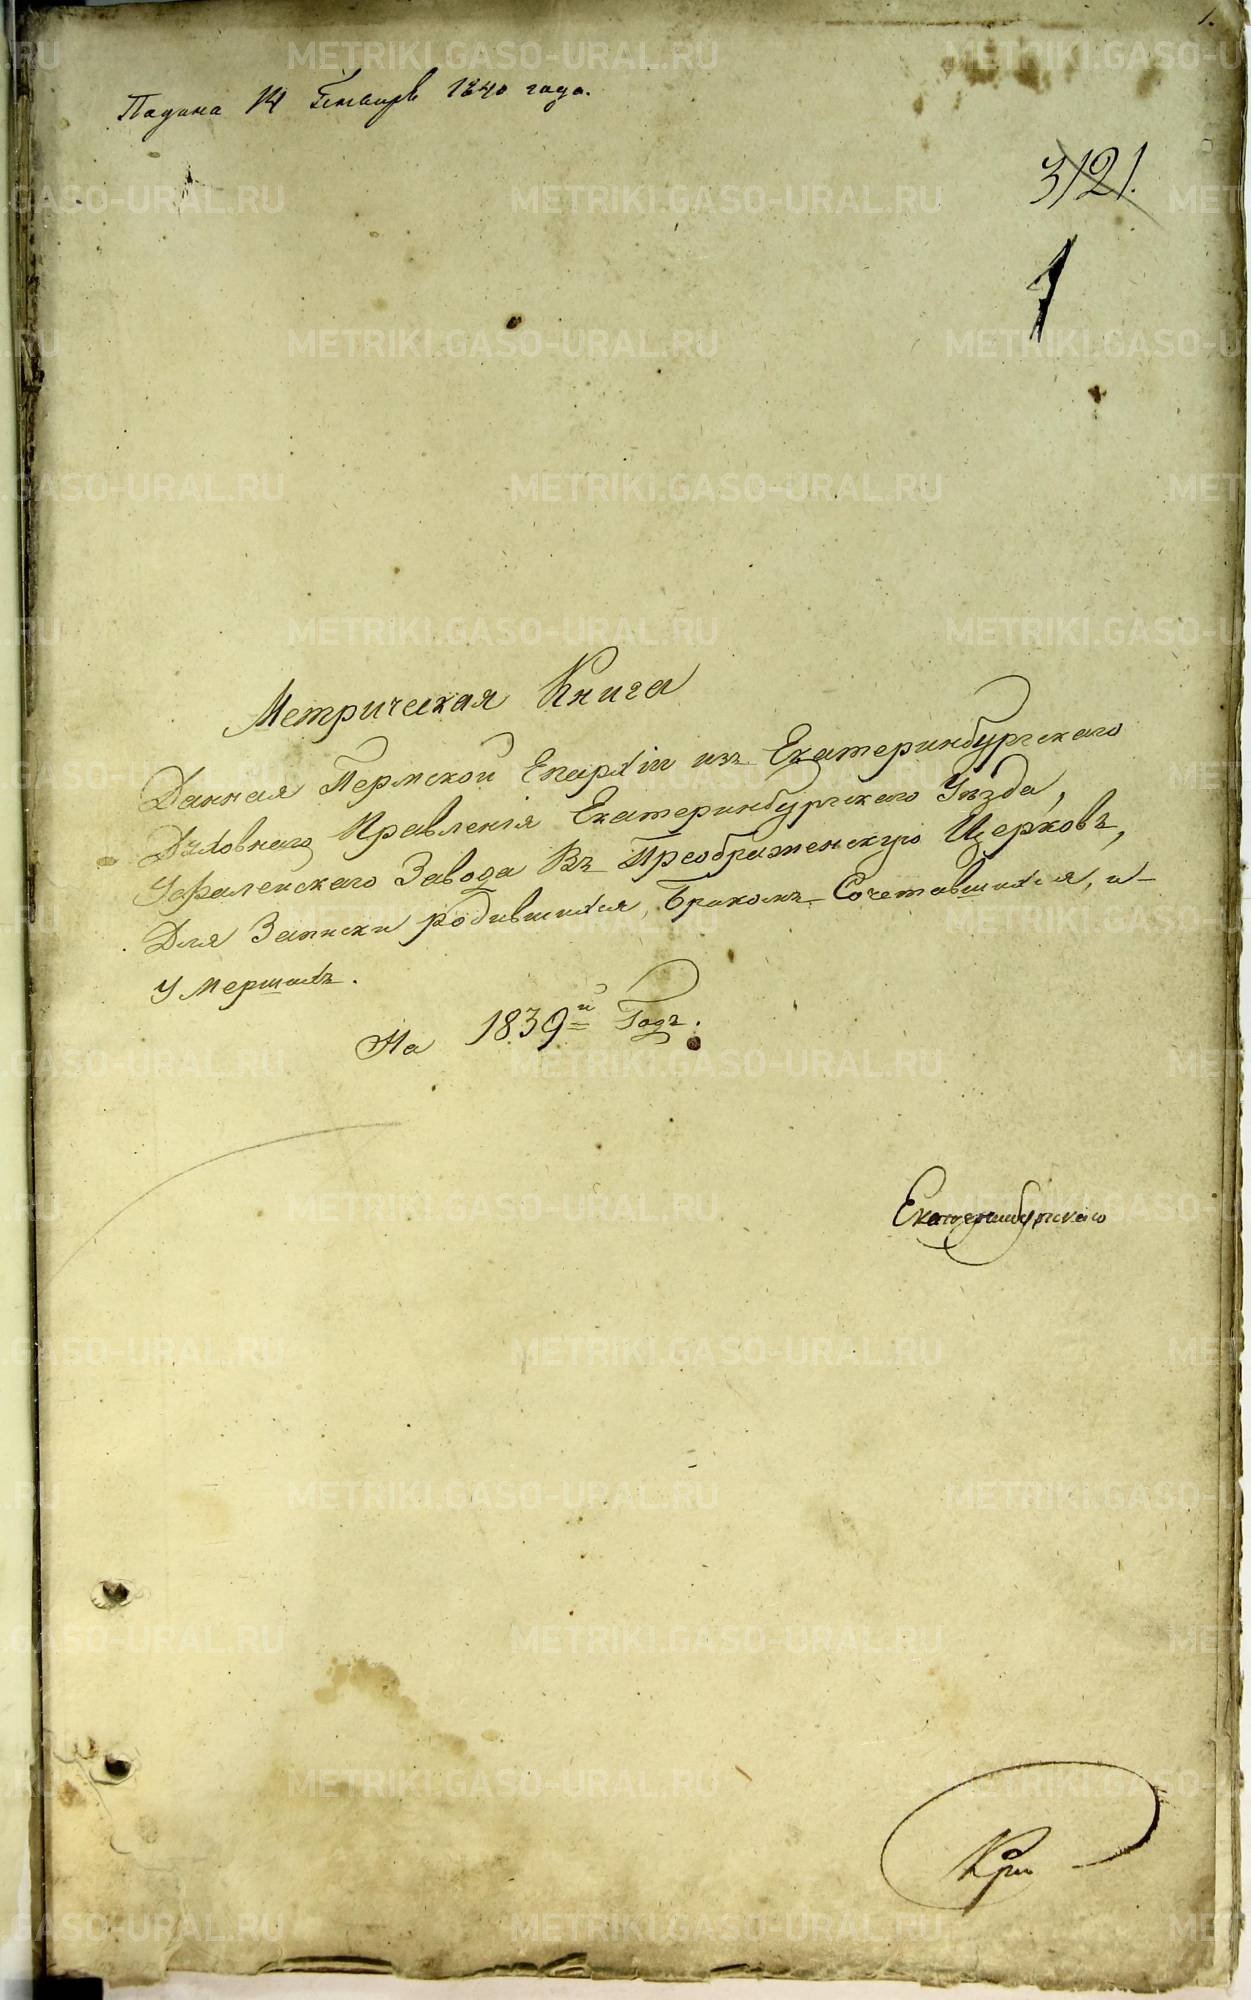 1.
Подана 14 Генваря 1840 года.
3121.
1
Метрическая Книга
Данная Пермской Епархіи изъ Екатеринбургскаго
Духовнаго Правленія Екатеринбургскаго Уѣзда,
Уфалейскаго Завода Въ Преображенскую Церковь,
Для Записки родившихся, Бракомъ Сочетавшихся, и
Умершихъ.
На 1839й Годъ.
Екатеринбургскаго
METRIKI.GASO-URAL.RU